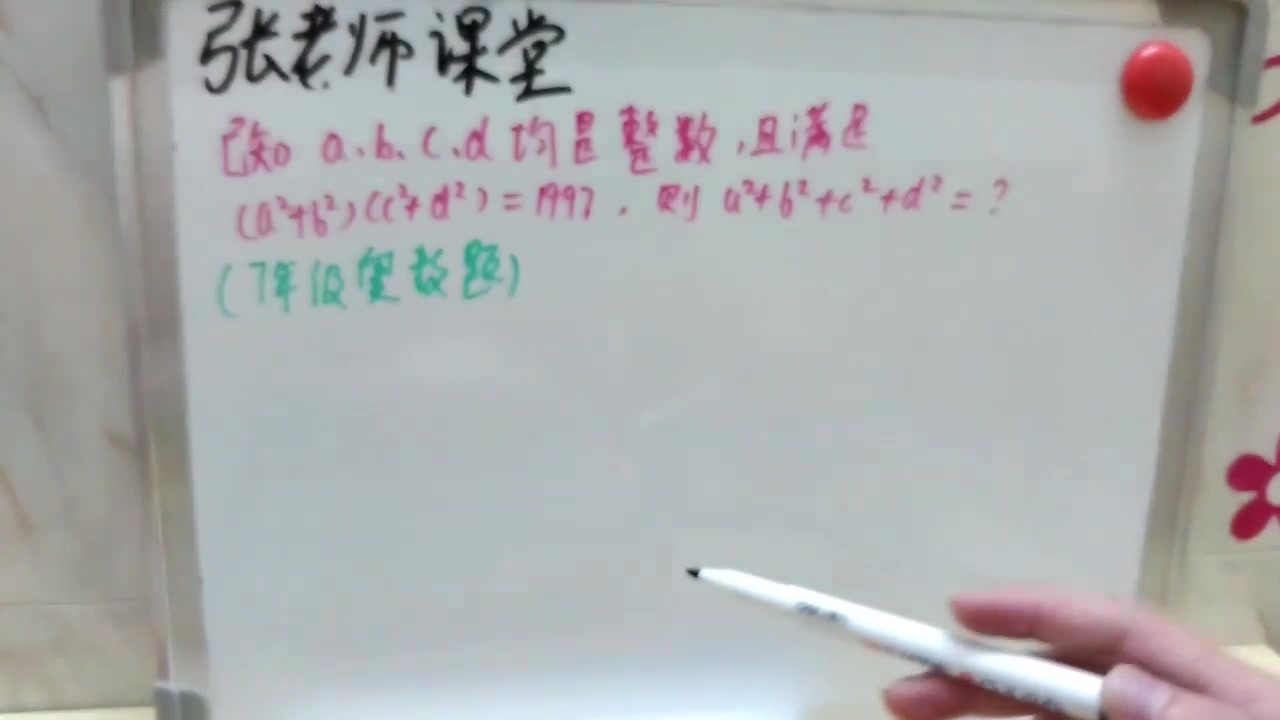 张老师课堂
已知 a、b、c、d 均是整数,且满足
(a²+b²)(c²+d²)=1997,则 a²+b²+c²+d²=?
(7年级奥数题)